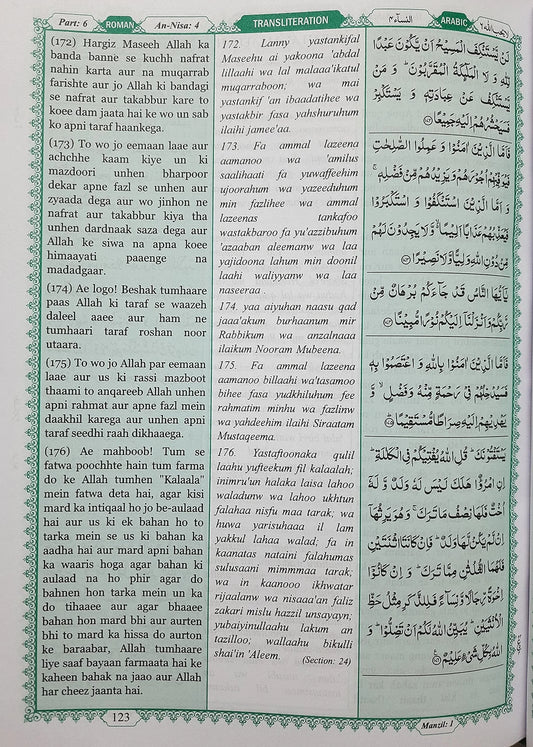 Part: 6 ROMAN An-Nisa: 4 TRANSLITERATION النسآء ۴ ARABIC لا یحب اللہ ۶
(172) Hargiz Maseeh Allah ka
banda banne se kuchh nafrat
nahin karta aur na muqarrab
farishte aur jo Allah ki bandagi
se nafrat aur takabbur kare to
koee dam jaata hai ke wo un sab
ko apni taraf haankega.
(173) To wo jo eemaan laae aur
achchhe kaam kiye un ki
mazdoori unhen bharpoor
dekar apne fazl se unhen aur
zyaada dega aur wo jinhon ne
nafrat aur takabbur kiya tha
unhen dardnaak saza dega aur
Allah ke siwa na apna koee
himaayati paaenge na
madadgaar.
(174) Ae logo! Beshak tumhaare
paas Allah ki taraf se waazeh
daleel aaee aur ham ne
tumhaari taraf roshan noor
utaara.
(175) To wo jo Allah par eemaan
laae aur us ki rassi mazboot
thaami to anqareeb Allah unhen
apni rahmat aur apne fazl mein
daakhil karega aur unhen apni
taraf seedhi raah dikhaaega.
(176) Ae mahboob! Tum se
fatwa poochhte hain tum farma
do ke Allah tumhen "Kalaala"
mein fatwa deta hai, agar kisi
mard ka intiqaal ho jo be-aulaad
hai aur us ki ek bahan ho to
tarka mein se us ki bahan ka
aadha hai aur mard apni bahan
ka waaris hoga agar bahan ki
aulaad na ho phir agar do
bahnen hon tarka mein un ka
do tihaaee aur agar bhaaee
bahan hon mard bhi aur aurten
bhi to mard ka hissa do aurton
ke baraabar, Allah tumhaare
liye saaf bayaan farmaata hai ke
kaheen bahak na jaao aur Allah
har cheez jaanta hai.
172. Lanny yastankifal
Maseehu ai yakoona 'abdal
lillaahi wa lal malaaa'ikatul
muqarraboon; wa mai
yastankif 'an ibaadatihee wa
yastakbir fasa yahshuruhum
ilaihi jamee'aa.
173. Fa ammal lazeena
aamanoo wa 'amilus
saalihaati fa yuwaffeehim
ujoorahum wa yazeeduhum
min fazlihee wa ammal
lazeenas tankafoo
wastakbaroo fa yu'azzibuhum
'azaaban aleemanw wa laa
yajidoona lahum min doonil
laahi waliyyanw wa laa
naseeraa .
174. yaa aiyuhan naasu qad
jaaa'akum burhaanum mir
Rabbikum wa anzalnaaa
ilaikum Nooram Mubeena.
175. Fa ammal lazeena
aamanoo billaahi wa'tasamoo
bihee fasa yudkhiluhum fee
rahmatim minhu wa fazlinw
wa yahdeehim ilaihi Siraatam
Mustaqeema.
176. Yastaftoonaka qulil
laahu yufteekum fil kalaalah;
inimru'un halaka laisa lahoo
waladunw wa lahoo ukhtun
falahaa nisfu maa tarak; wa
huwa yarisuhaaa il lam
yakkul lahaa walad; fa in
kaanatas nataini falahumas
sulusaani mimmmaa tarak;
wa in kaanooo ikhwatar
rijaalanw wa nisaaa'an faliz
zakari mislu hazzil unsayayn;
yubaiyinullaahu lakum an
tazilloo; wallaahu bikulli
shai'in 'Aleem. (Section: 24)
لَنْ يَّسْتَنْكِفَ الْمَسِيْحُ اَنْ يَّكُوْنَ عَبْدًا
لِّلّٰهِ وَ لَا الْمَلٰٓئِكَةُ الْمُقَرَّبُوْنَ ؕ وَ مَنْ
يَّسْتَنْكِفْ عَنْ عِبَادَتِهٖ وَ يَسْتَكْبِرْ
فَسَيَحْشُرُهُمْ اِلَيْهِ جَمِيْعًا
فَاَمَّا الَّذِيْنَ اٰمَنُوْا وَ عَمِلُوا الصّٰلِحٰتِ
فَيُوَفِّيْهِمْ اُجُوْرَهُمْ وَ يَزِيْدُهُمْ مِّنْ فَضْلِهٖ ۚ
وَ اَمَّا الَّذِيْنَ اسْتَنْكَفُوْا وَ اسْتَكْبَرُوْا
فَيُعَذِّبُهُمْ عَذَابًا اَلِيْمًا ۙ۬ وَّ لَا يَجِدُوْنَ لَهُمْ
مِّنْ دُوْنِ اللّٰهِ وَلِيًّا وَّ لَا نَصِيْرًا
يٰۤاَيُّهَا النَّاسُ قَدْ جَآءَكُمْ بُرْهَانٌ مِّنْ
رَّبِّكُمْ وَ اَنْزَلْنَاۤ اِلَيْكُمْ نُوْرًا مُّبِيْنًا
فَاَمَّا الَّذِيْنَ اٰمَنُوْا بِاللّٰهِ وَ اعْتَصَمُوْا بِهٖ
فَسَيُدْخِلُهُمْ فِيْ رَحْمَةٍ مِّنْهُ وَ فَضْلٍ ۙ وَّ
يَهْدِيْهِمْ اِلَيْهِ صِرَاطًا مُّسْتَقِيْمًا
يَسْتَفْتُوْنَكَ ؕ قُلِ اللّٰهُ يُفْتِيْكُمْ فِي الْكَلٰلَةِ ؕ
اِنِ امْرُؤٌا هَلَكَ لَيْسَ لَهٗ وَلَدٌ وَّ لَهٗۤ
اُخْتٌ فَلَهَا نِصْفُ مَا تَرَكَ ۚ وَ هُوَ يَرِثُهَاۤ
اِنْ لَّمْ يَكُنْ لَّهَا وَلَدٌ ؕ فَاِنْ كَانَتَا اثْنَتَيْنِ
فَلَهُمَا الثُّلُثٰنِ مِمَّا تَرَكَ ؕ وَ اِنْ كَانُوْۤا
اِخْوَةً رِّجَالًا وَّ نِسَآءً فَلِلذَّكَرِ مِثْلُ حَظِّ
الْاُنْثَيَيْنِ ؕ يُبَيِّنُ اللّٰهُ لَكُمْ اَنْ تَضِلُّوْا ؕ وَ
اللّٰهُ بِكُلِّ شَيْءٍ عَلِيْمٌ
123
Manzil: 1